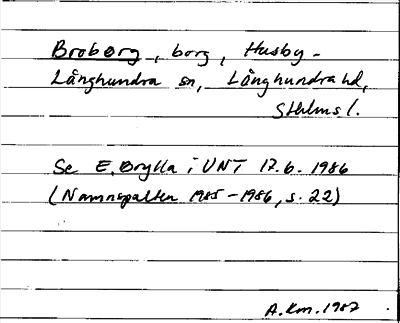 Broborg, borg, Husby-
Långhundra sn, Långhundra hd,
Sthlms l.
Se E. Brylla i UNT 17.6. 1986
(Namnspalten 1985-1986, s. 22)
A.Km. 1987